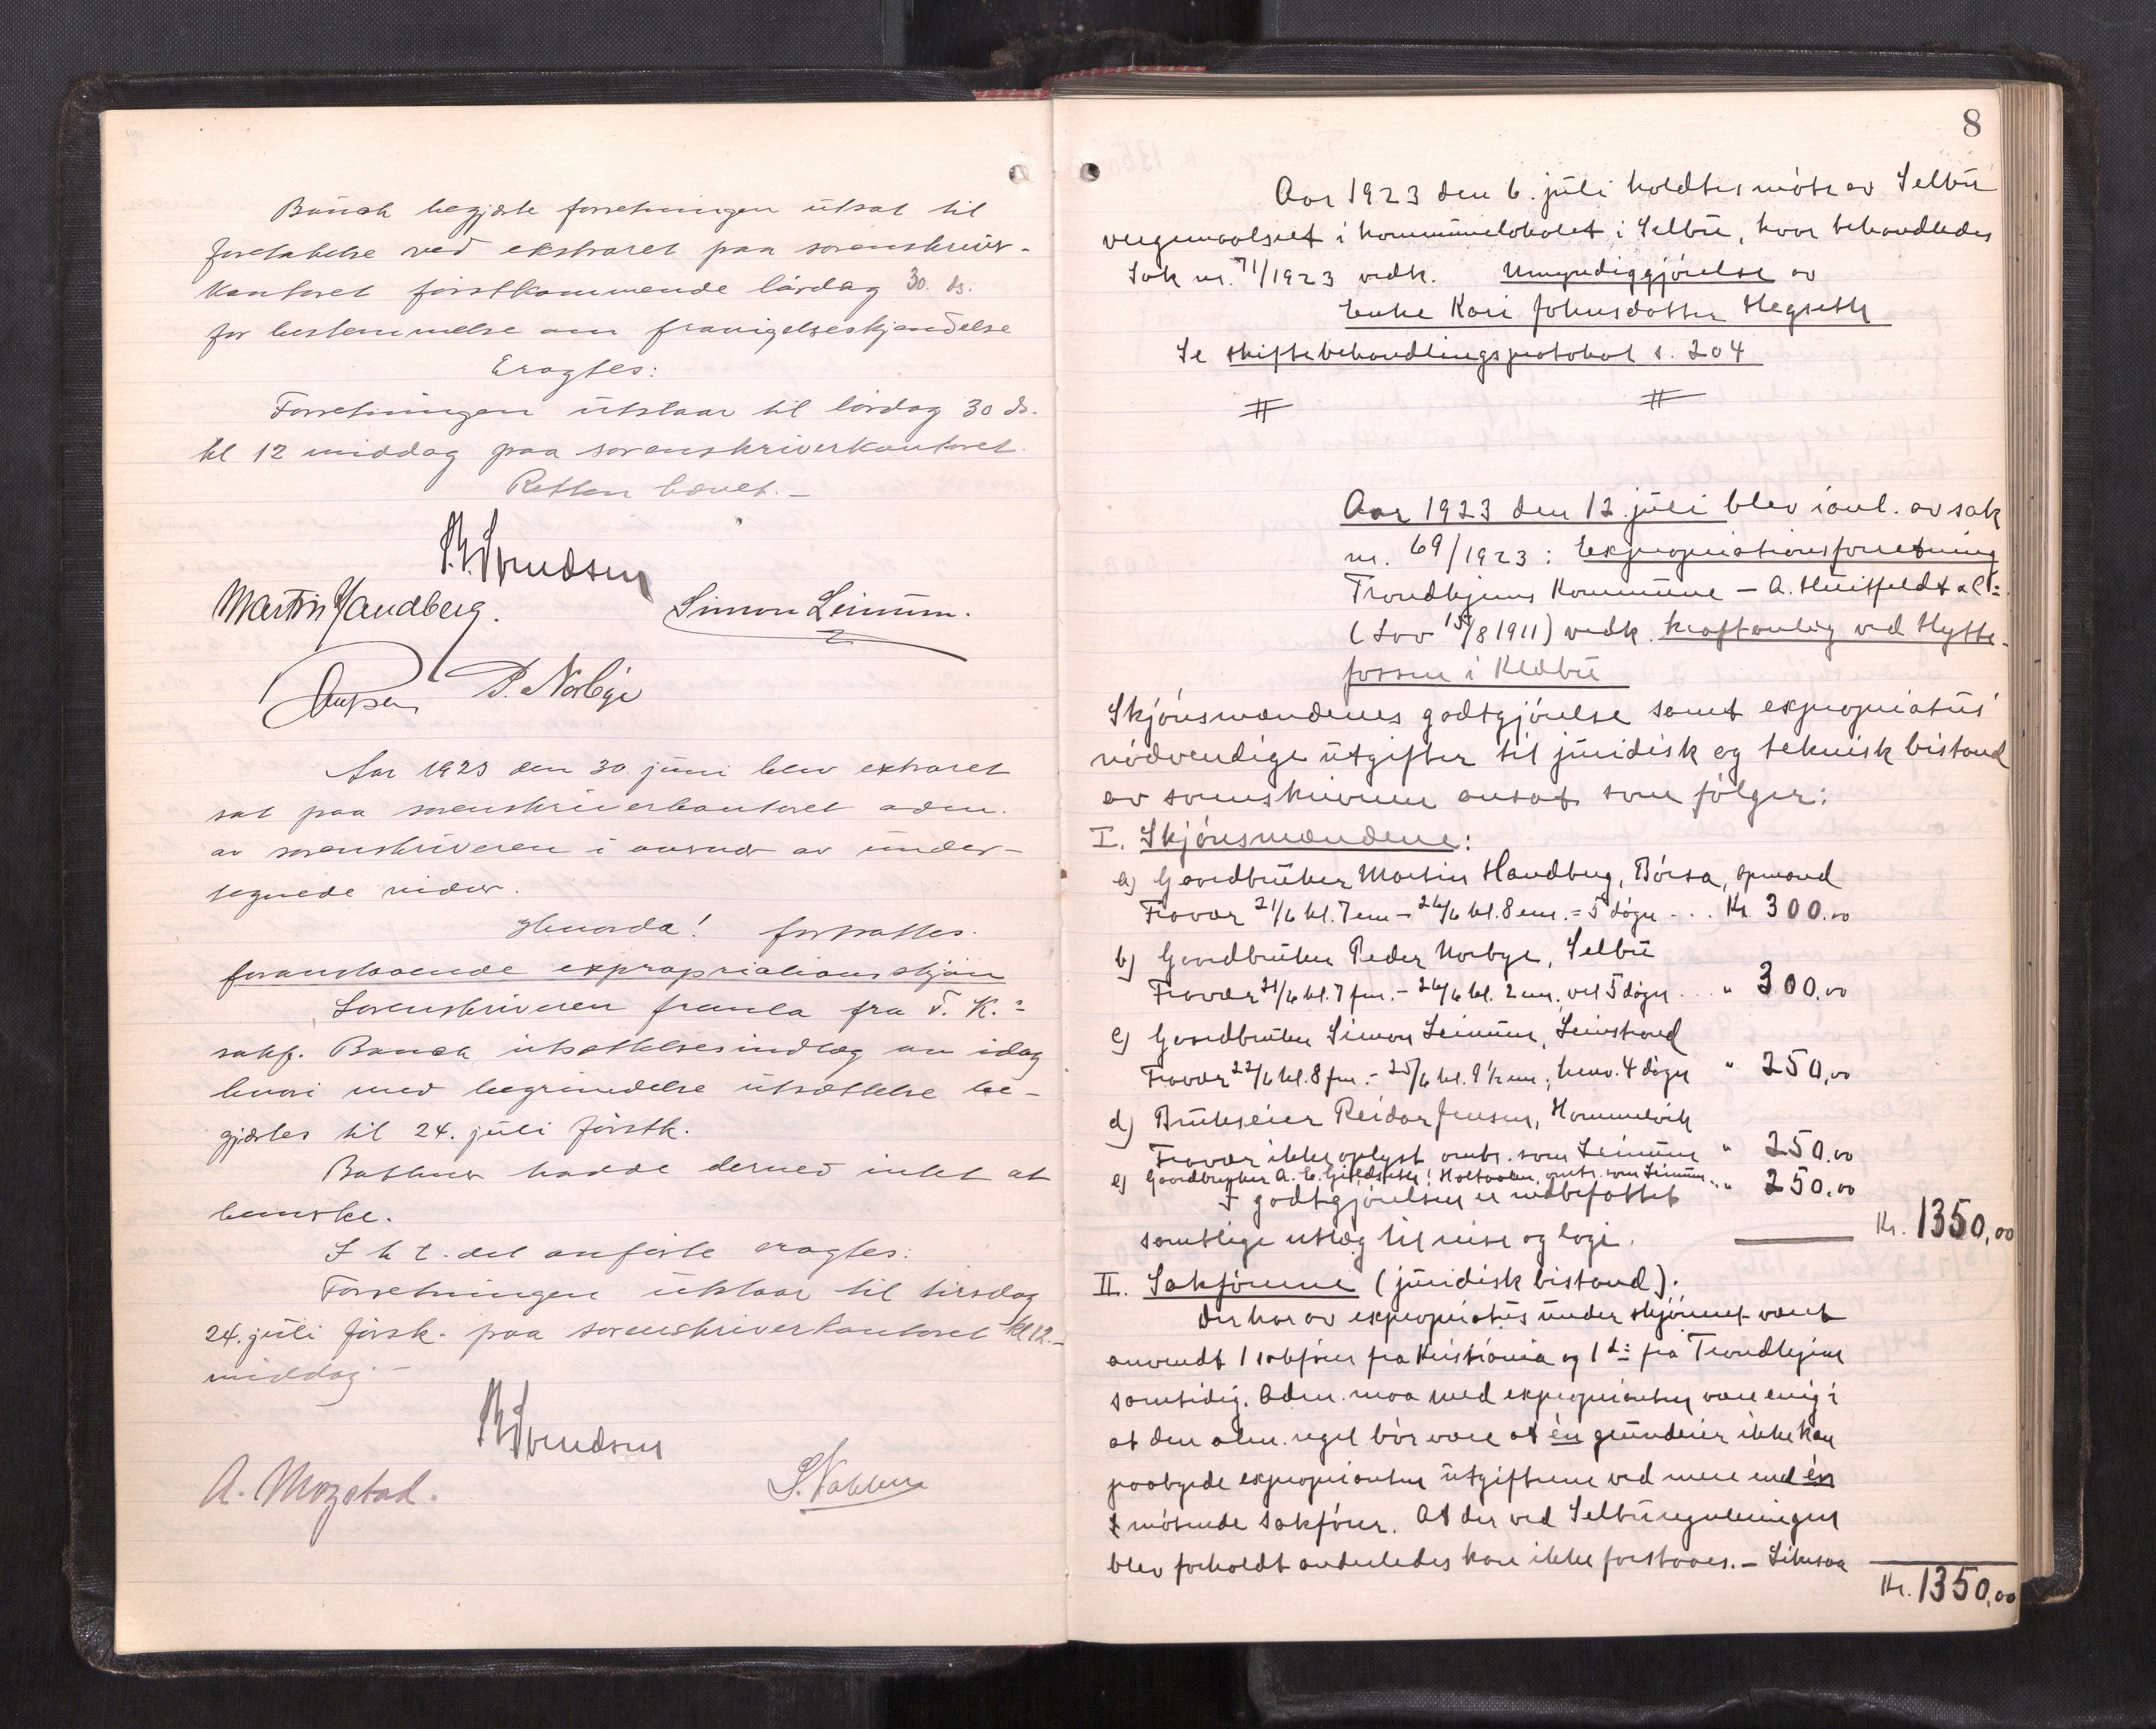 Bauck begjærte forretningen utsat til
foretakelse ved ekstraret paa sorenskriver-
kontoret førstkommende lørdag 30. ds.
for bestemmelse om fravigelseskjendelse
Eragtes:
Forretningen utstaar til lørdag 30 ds.
kl 12 middag paa sorenskriverkontoret.
Retten hævet. —
Svendsen
Martin Handberg. Simon Leinum.
P. Norbye
Aar 1923 den 30. juni blev extraret
sat paa sorenskriverkontoret adm.
av sorenskriveren i nærvær av under-
tegnede vidner.
Hvorda! fortsattes
foranstaaende expropriationsskjøn
Sorenskriveren fremla fra T. K.s
sakf. Bauck utsættelsesindlæg av idag
hvori med begrundelse utsættelse be-
gjæres til 24. juli førstk.
hadde derved intet at
bemerke.
I h t. det anførte eragtes:
Forretningen utstaar til tirsdag
24. juli førsk. paa sorenskriverkontoret kl 12
middag —
Svendsen
A. Mogstad.
8
Aar 1923 den 6. juli holdtes møte av Selbu
vergemaalsret i kommunelokalet i Selbu, hvor behandledes
Sak nr. 71/1923 vedk. Umyndiggjørelse av
Enke Kari Johnsdatter Hegseth
Se skiftebehandlingsprotokol s. 204
Aar 1923 den 12. juli blev i anl. av sak
nr. 69/1923: Expropriationsforretning
Trondhjems Kommune — A. Huitfeldt
(Lov 15/8 1911) vedk. kraftanlæg ved Hytte-
fossen i Klæbu
Skjønsmændenes godtgjørelse samt expropriatus'
nødvendige utgifter til juridisk og teknisk bistand
av sorenskriveren ansat som følger:
I. Skjønsmændene:
a) Gaardbruker Martin Handberg, Børsa, opmand
Fravær 21/6 kl. 7 em – 26/6 kl. 8 em. = 5 døgn ... Kr. 300.00
b) Gaardbruker Peder Norbye, Selbu
Fravær 21/6 kl. 7 fm. – 26/6 kl. 2 em, vel 5 døgn ... " 300.00
c) Gaardbruker Simon Leinum, Leinstrand
Fravær 22/6 kl. 8 fm. – 25/6 kl. 9 1/2 em, henv. 4 døgn " 250,00
d) Brukseier Reidar Jensen, Hommelvik
Fravær ikke oplyst omtr. som Leinum " 250.00
e) Gaardbruker A. E. Holtaalen, omtr. som Leinum .. " 250.00
I godtgjørelsen er indbefattet
samtlige utlæg til reise og logi. Kr. 1350,00
II. Sakførerne (juridisk bistand).
Der har av expropriatus under skjønnet været
anvendt 1 sakfører fra Kristiania og 1 do fra Trondhjem
samtidig. Adm. maa med exproprianten være enig i
at den alm. regel bør være at én grundeier ikke kan
paabyrde exproprianten utgifterne ved mere end én
møtende sakfører. At der ved Selbureguleringen
blev forholdt anderledes kan ikke forstaaes. – Likesaa
Kr. 1350,00